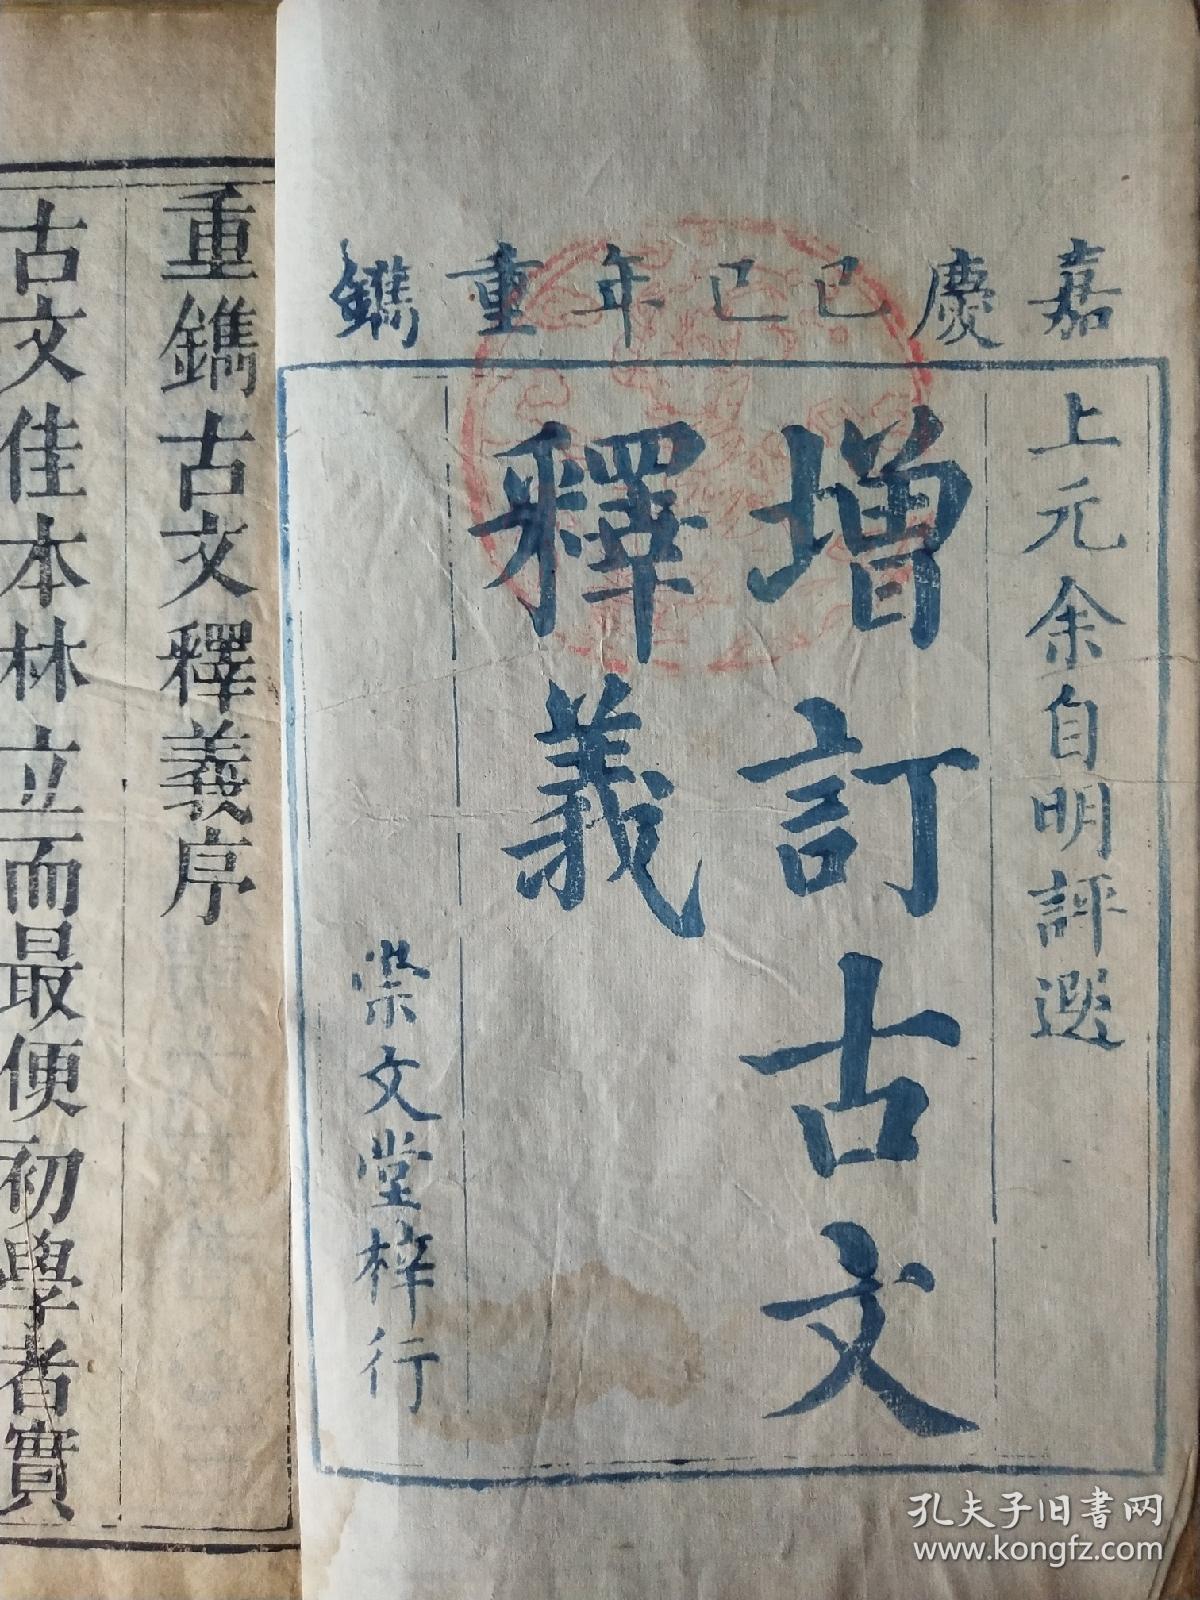 嘉慶己巳年重鐫
上元余自明評選
增訂古文
釋義
崇文堂梓行
重鐫古文釋義序
古文佳本林立而最便初學者實
孔夫子旧书网
www.kongfz.com